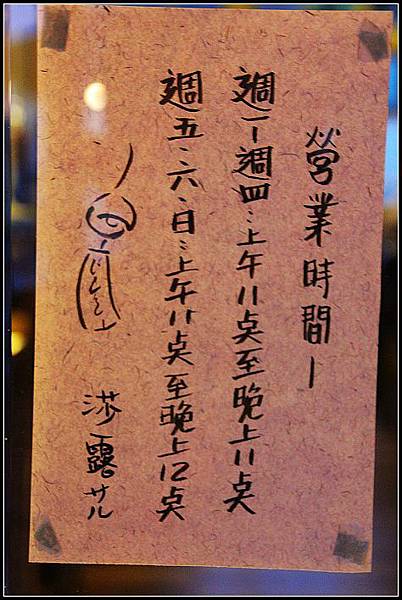 營業時間－
週一－週四：上午11点至晚上11点
週五．六．日：上午11点至晚上12点
莎露サル